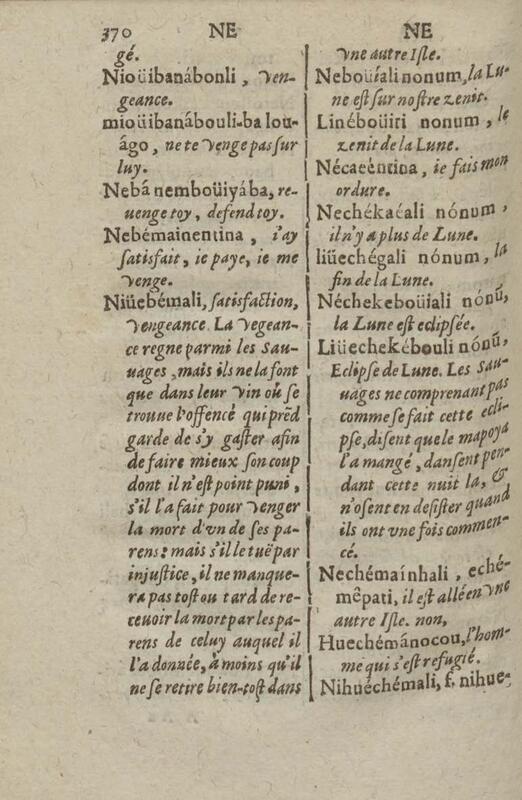 370 NE NE
gé.
Nioüibanábonli, ven-
geance.
mioüibanábouli-ba lou-
ágo, ne te venge pas sur
luy.
Nebâ nemboüiyába, re-
uenge toy, defend toy.
Nebémainentina, i'ay
satisfait, ie paye, ie me
venge.
Niüebémali, satisfaction,
vengeance. La vegean-
ce regne parmi les Sau-
uages, mais ils ne la font
que dans leur vin où se
trouue l'offencé qui prēd
garde de s'y gaster afin
de faire mieux son coup
dont il n'est point puni,
s'il l'a fait pour venger
la mort d'vn de ses pa-
rens: mais s'il le tuë par
injustice, il ne manque-
ra pas tost ou tard de re-
ceuoir la mort par les pa-
rens de celuy auquel il
l'a donnée, à moins qu'il
ne se retire bien-tost dans
vne autre Isle.
Neboüíali nonum, la Lu-
ne est sur nostre zenit.
Linéboüiri nonum, le
zenit de la Lune.
Nécaeéntina, ie fais mon
ordure.
Nechékaéali nónum,
il n'y a plus de Lune.
liüechégali nónum, la
fin de la Lune.
Néchekeboüiali nónū,
la Lune est eclipsée.
Liüechekébouli nónū,
Eclipse de Lune. Les Sau-
uages ne comprenant pas
comme se fait cette ecli-
pse, disent que le mapoya
l'a mangé, dansent pen-
dant cette nuit la, &
n'osent en desister quand
ils ont vne fois commen-
cé.
Nechémaínhali, eché-
mêpati, il est allé en vne
autre Isle. non,
Huechémánocou, l'hom-
me qui s'est refugié.
Nihuéchémali, f. nihue-